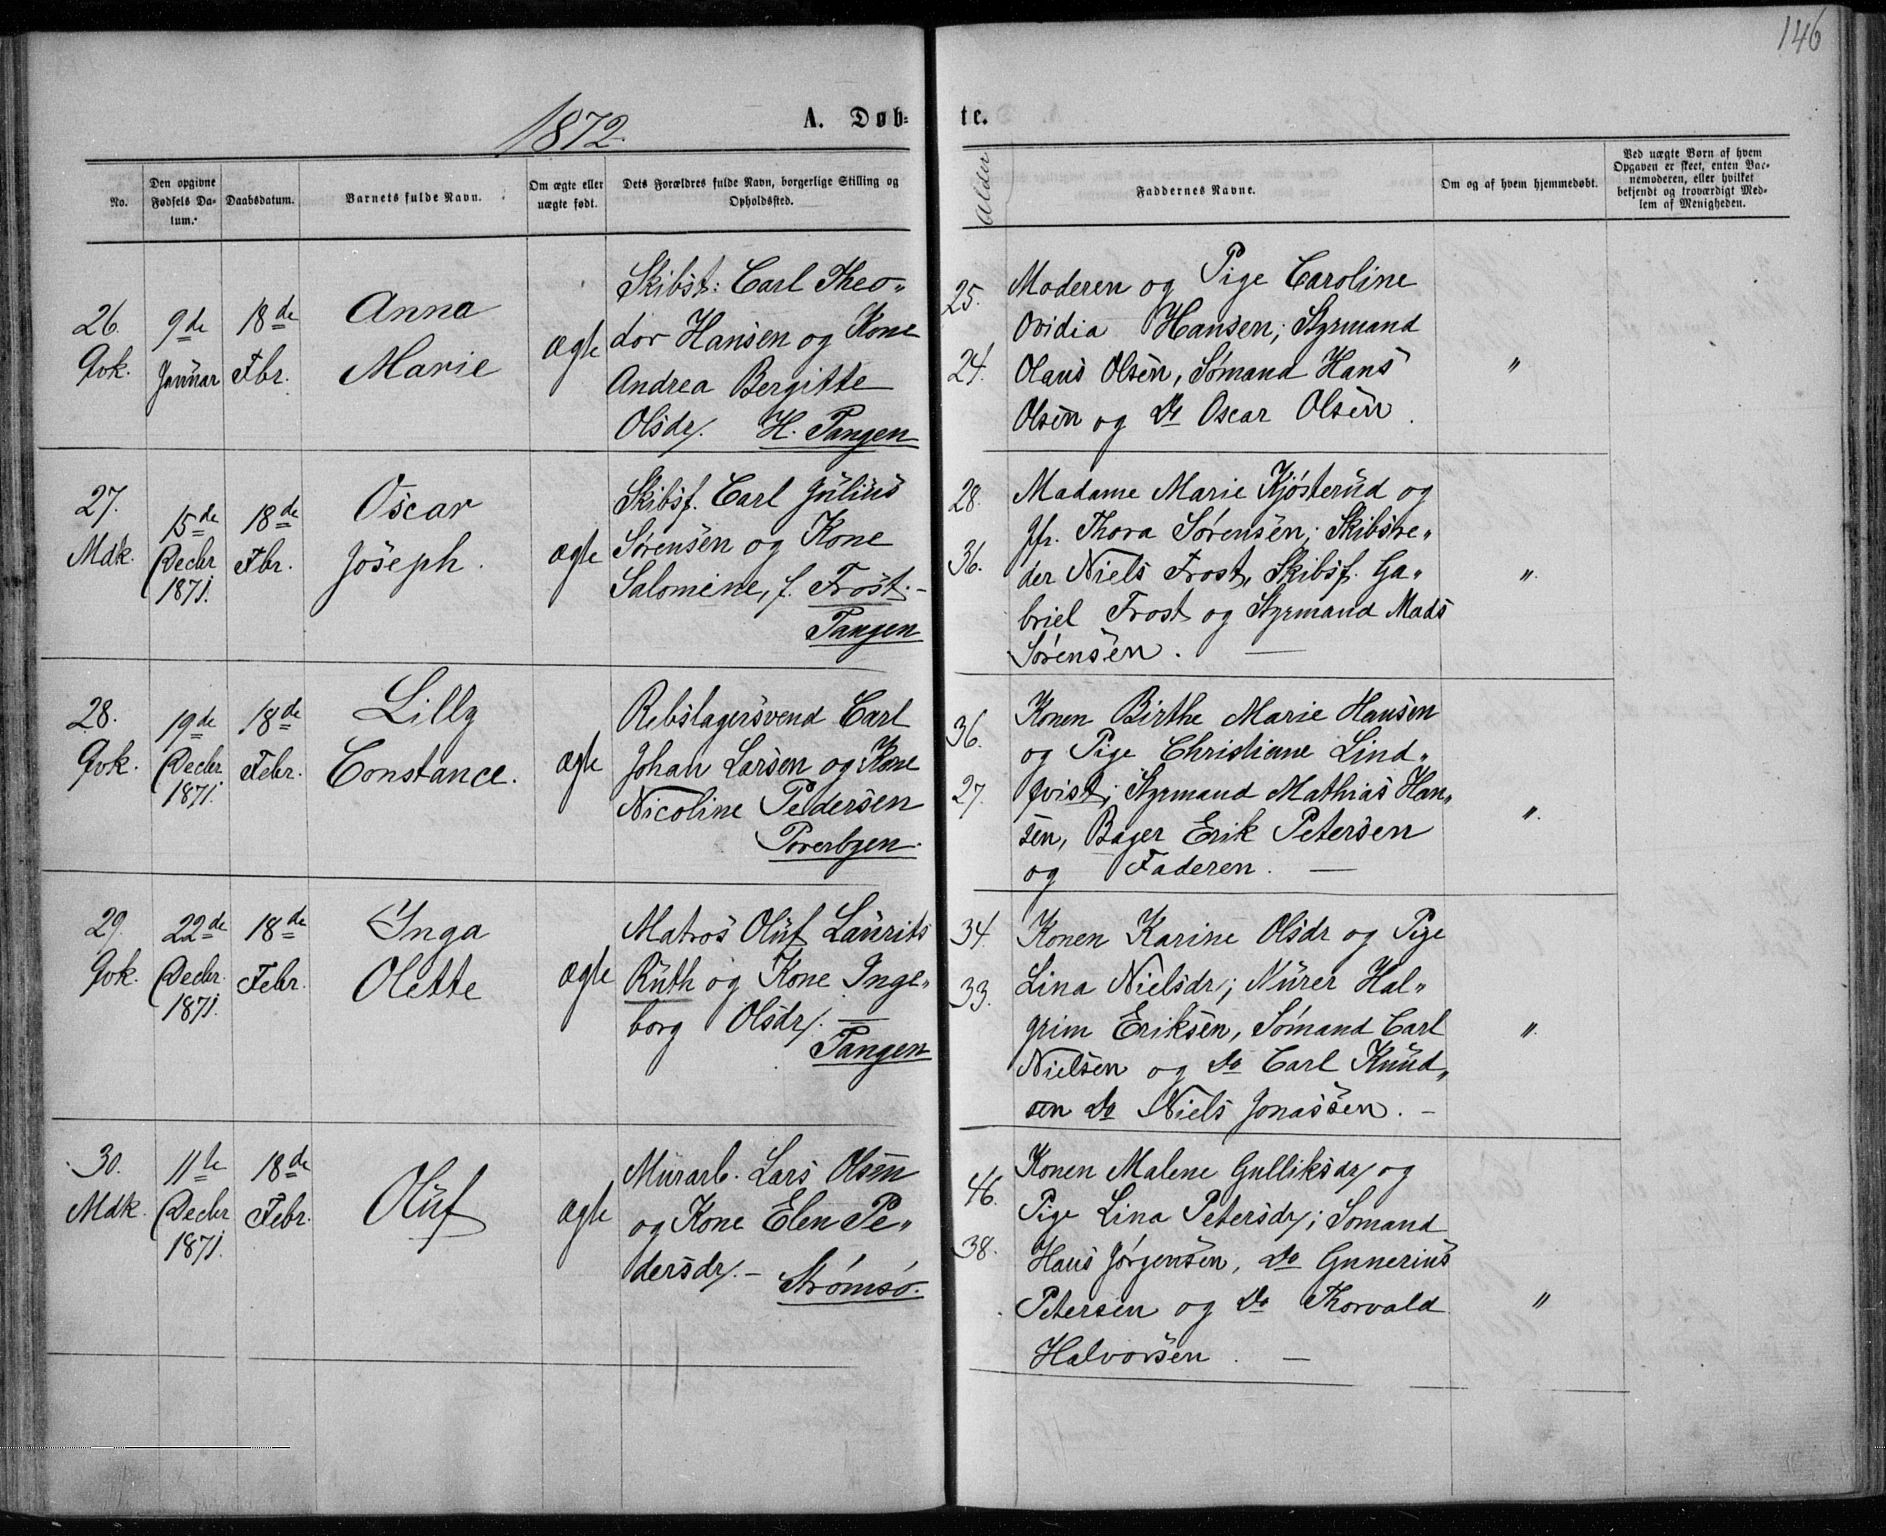 146
1872.
A. Døb-
te.
No.
Den opgivne
Fødsels Da-
tum.
Daabsdatum.
Barnets fulde Navn.
Om ægte eller
uægte født.
Dets Forældres fulde Navn, borgerlige Stilling og
Opholdssted.
Alder
Faddernes Navne.
Om og af hvem hjemmedøbt.
Ved uægte Børn af hvem
Opgaven er skeet, enten Bar-
nemoderen, eller hvilket
bekjendt og troværdigt Med-
lem af Menigheden.
26.
Qvk.
9de
Januar
18de
Fbr.
Anna
Marie
ægte
Skibst: Carl Theo„
dor Hansen og Kone
Andrea Bergitte
Olsdr. H. Tangen
25.
24.
Moderen og Pige Caroline
Ovidia Hansen; Styrmand
Olaus Olsen, Sømand Hans
Olsen og Do Oscar Olsen.
"
27.
Mdk.
15de
Decbr
1871.
18de
Fbr.
Oscar
Joseph.
ægte
Skibsf. Carl Julius
Sørensen og Kone
Salomine, f. Frost.-
Tangen
28.
36.
Madame Marie Kjøsterud og
Jfr. Thora Sørensen; Skibsre„
der Niels Frost, Skibsf. Ga„
briel Frost og Styrmand Mads
Sørensen. —
".
28.
Qvk.
19de
Decbr
1871.
18de
Febr.
Lilly
Constance.
ægte
Rebslagersvend Carl
Johan Larsen og Kone
Nicoline Pedersen
Toverbyen.
36.
27.
Konen Birthe Marie Hansen
og Pige Christiane Lind„
qvist; Styrmand Mathias Han„
sen, Bager Erik Petersen
og Faderen. —
".
29
Qvk.
22de
Decbr.
1871.
18de
Febr.
Inga
Olette
ægte
Matros Oluf Laurits
Ruth og Kone Inge„
borg Olsdr. —
Tangen
34.
33.
Konen Karine Olsdr og Pige
Lina Nielsdr; Murer Hal„
grim Eriksen, Sømand Carl
Nielsen og Do Carl Knud„
sen Do Niels Jonassen. –
".
30.
Mdk.
11te
Decbr
1871.
18de
Febr.
Oluf
ægte
Murarb. Lars Olsen
og Kone Elen Pe„
dersdr. – Strømsø.
46.
38.
Konen Malene Gulliksdr og
Pige Lina Petersdr; Sømand
Hans Jørgensen, Do Gunerius
Petersen og Do Thorvald
Halvorsen. —
"